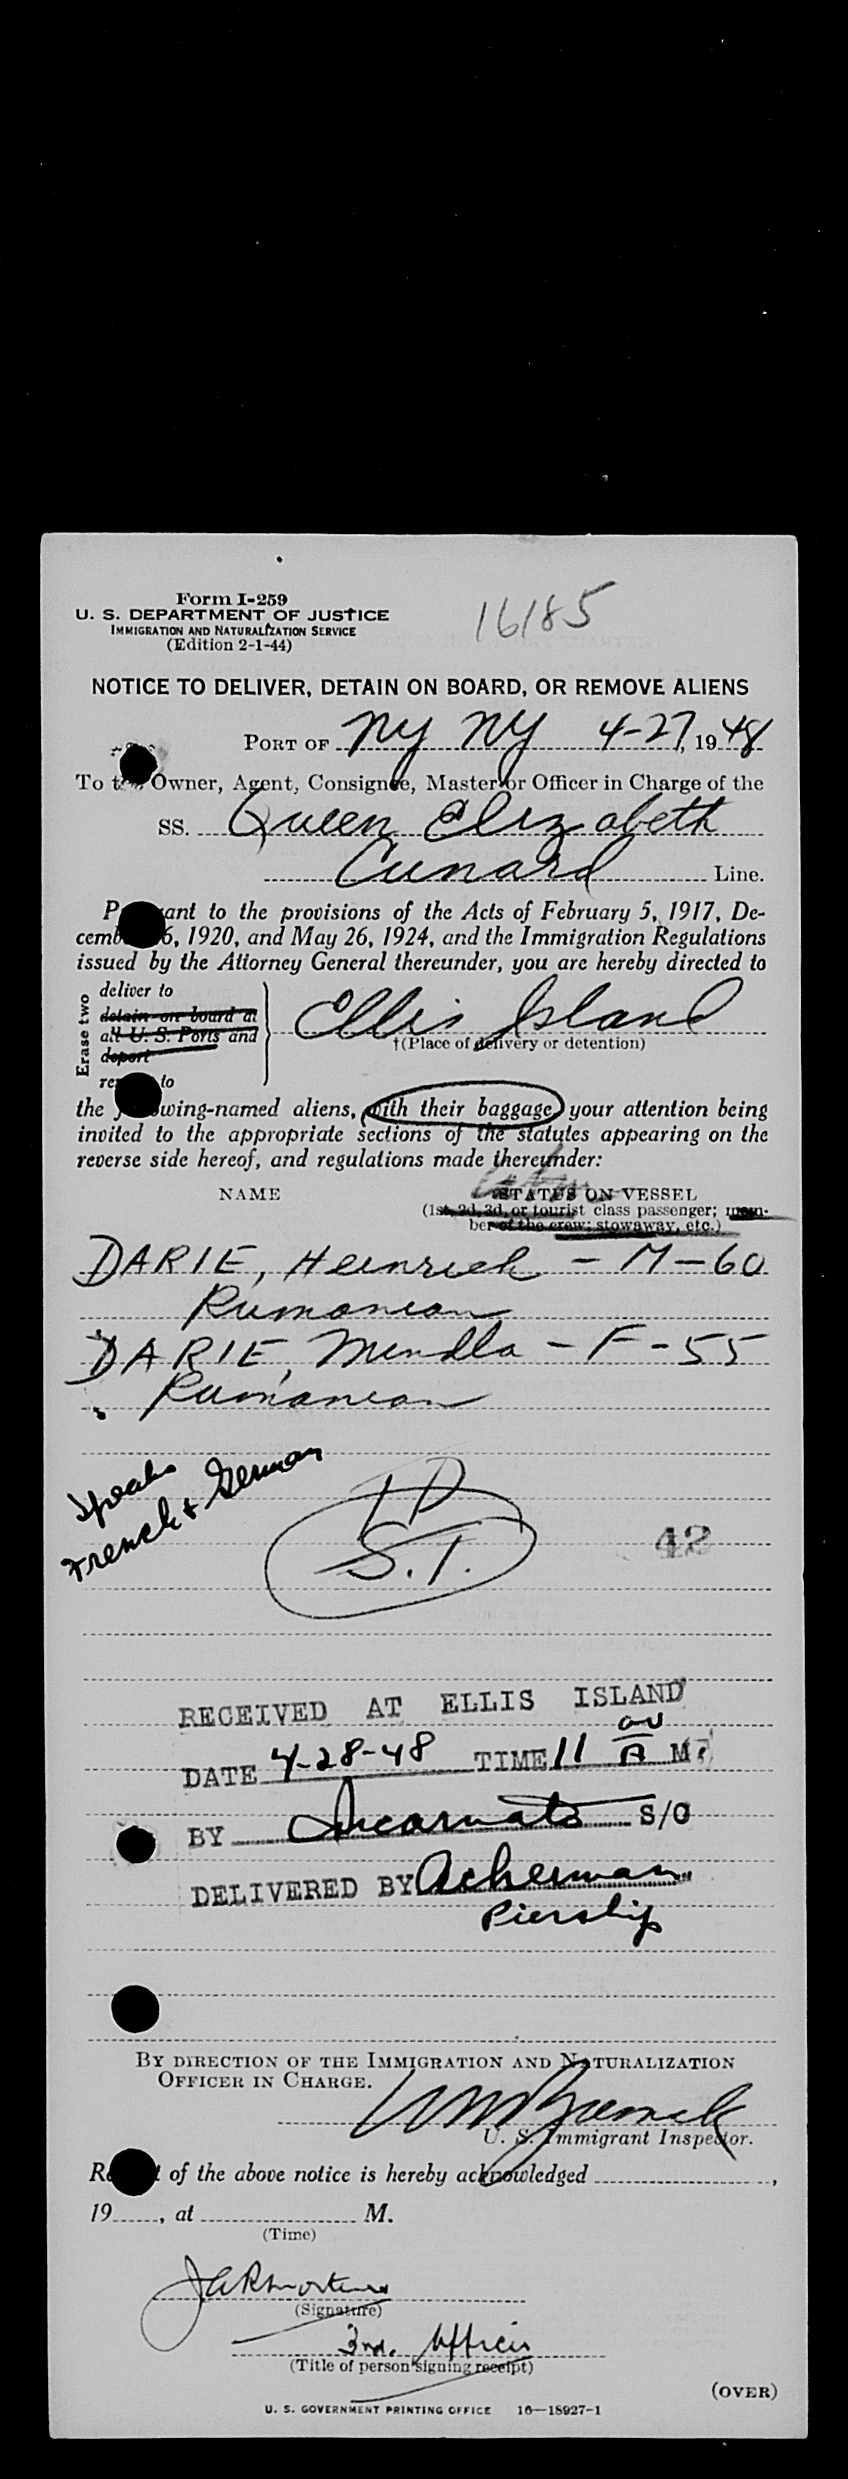 Form I-259
U. S. DEPARTMENT OF JUSTICE
IMMIGRATION AND NATURALIZATION SERVICE
(Edition 2-1-44)
16185
NOTICE TO DELIVER, DETAIN ON BOARD, OR REMOVE ALIENS
PORT OF NY NY 4-27, 1948
To Owner, Agent, Consignee, Master or Officer in Charge of the
SS. Queen Elizabeth
Cunard Line.
ant to the provisions of the Acts of February 5, 1917, De-
cemb 6, 1920, and May 26, 1924, and the Immigration Regulations
issued by the Attorney General thereunder, you are hereby directed to
Erase two
deliver to
detain on board at
all U. S. Ports and
deport
re to
Ellis Island
†(Place of delivery or detention)
the wing-named aliens, with their baggage, your attention being
invited to the appropriate sections of the statutes appearing on the
reverse side hereof, and regulations made thereunder:
NAME STATUS ON VESSEL
(1st, 2d, 3d, or tourist class passenger; mem-
ber of the crew; stowaway, etc.)
DARIE, Heinrich - M - 60
Rumanian
DARIE, Mendla - F - 55
Rumanian
Speaks
French & German
S.I.
42
RECEIVED AT ELLIS ISLAND
DATE 4-28-48 TIME 11 A M
BY Incarnato S/O
DELIVERED BY Ackerman
Piership
BY DIRECTION OF THE IMMIGRATION AND NATURALIZATION
OFFICER IN CHARGE.
U. S. Immigrant Inspector.
Re t of the above notice is hereby acknowledged ,
19 , at M.
(Time)
(Signature)
3rd. Officer
(Title of person signing receipt)
(OVER)
U. S. GOVERNMENT PRINTING OFFICE 16—18927-1